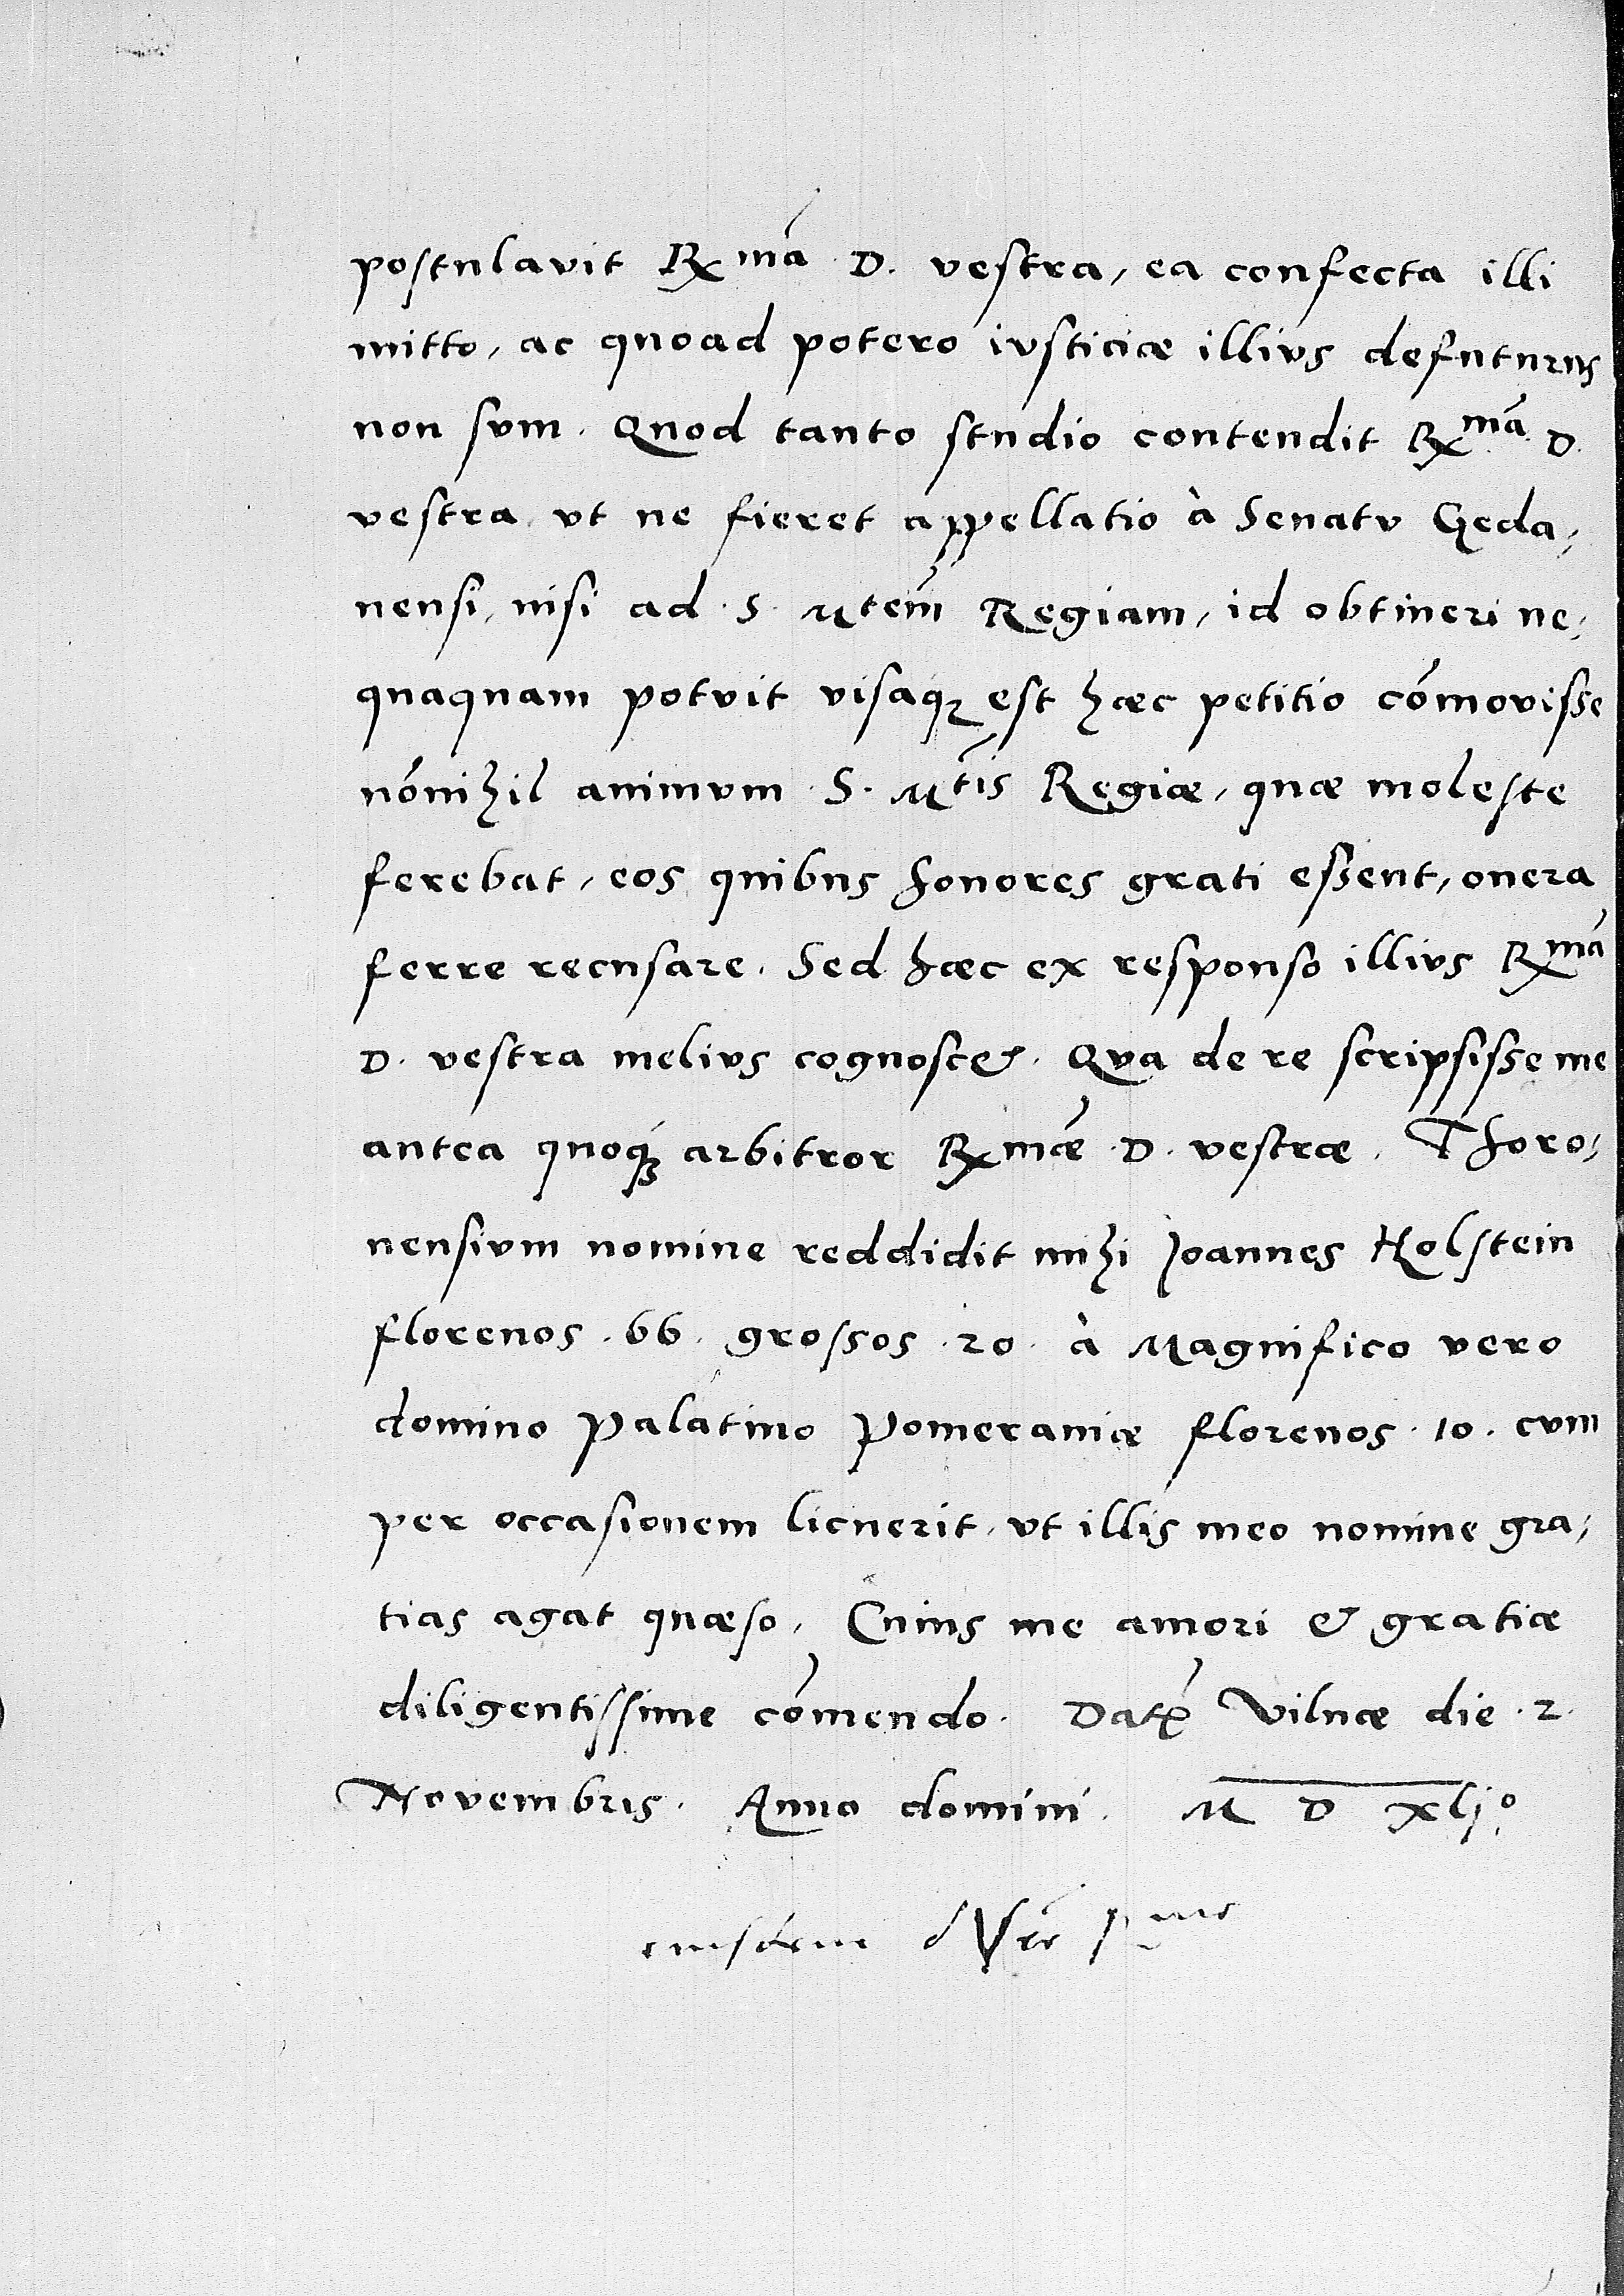 postulavit Rxmā D. vestra, ea confecta illi
mitto, ac quoad potero iusticiæ illius defuturus
non sum. Quod tanto studio contendit Rxmā D.
vestra, ut ne fieret appellatio à Senatu Geda,
nensi, nisi ad S. Mtem̄ Regiam, id obtineri ne,
quaquam potuit visaqꝫ est hæc petitio cōmovisse
nōnihil animum S. Mtīs Regiæ, quæ moleste
ferebat, eos quibus honores grati essent, onera
ferre recusare. Sed hæc ex responso illius Rxmā
D. vestra melius cognoscet. Qua de re scripsisse me
antea quoqꝫ arbitror Rxmǣ D. vestræ. Thoro,
nensium nomine reddidit mihi Joannes Holstein
florenos .66. grossos .20. à Magnifico vero
domino Palatino Pomeraniæ florenos .10. cum
per occasionem licuerit, ut illis meo nomine gra,
tias agat quæso. Cuius me amori & gratiæ
diligentissime cōmendo. Datꝭ Vilnæ die .2.
Novembris. Anno domini. M D xljº.
eiusdem d Vrē